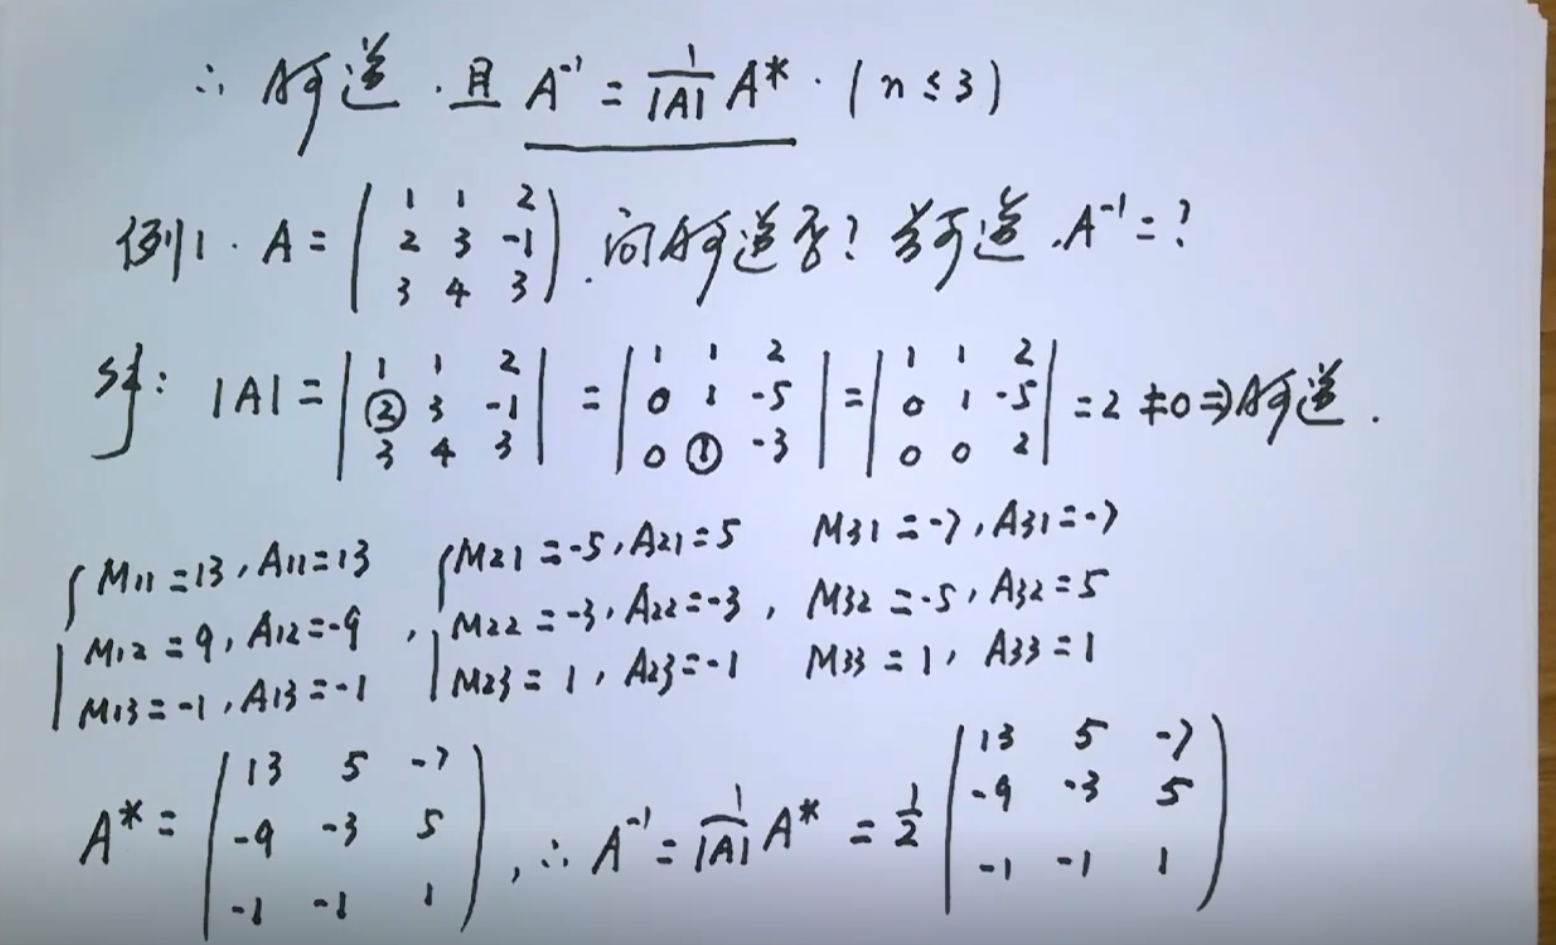 ∴ A可逆. 且 A⁻¹ = 1/|A| A*. (n ≤ 3)
例1. A = (1 1 2; 2 3 -1; 3 4 3). 问A可逆否? 若可逆, A⁻¹ = ?
解: |A| = |1 1 2; 2 3 -1; 3 4 3| = |1 1 2; 0 1 -5; 0 1 -3| = |1 1 2; 0 1 -5; 0 0 2| = 2 ≠ 0 ⇒ A可逆.
M11 = 13, A11 = 13 M21 = -5, A21 = 5 M31 = -7, A31 = -7
M12 = 9, A12 = -9, M22 = -3, A22 = -3, M32 = -5, A32 = 5
M13 = -1, A13 = -1 M23 = 1, A23 = -1 M33 = 1, A33 = 1
A* = (13 5 -7; -9 -3 5; -1 -1 1), ∴ A⁻¹ = 1/|A| A* = 1/2 (13 5 -7; -9 -3 5; -1 -1 1)